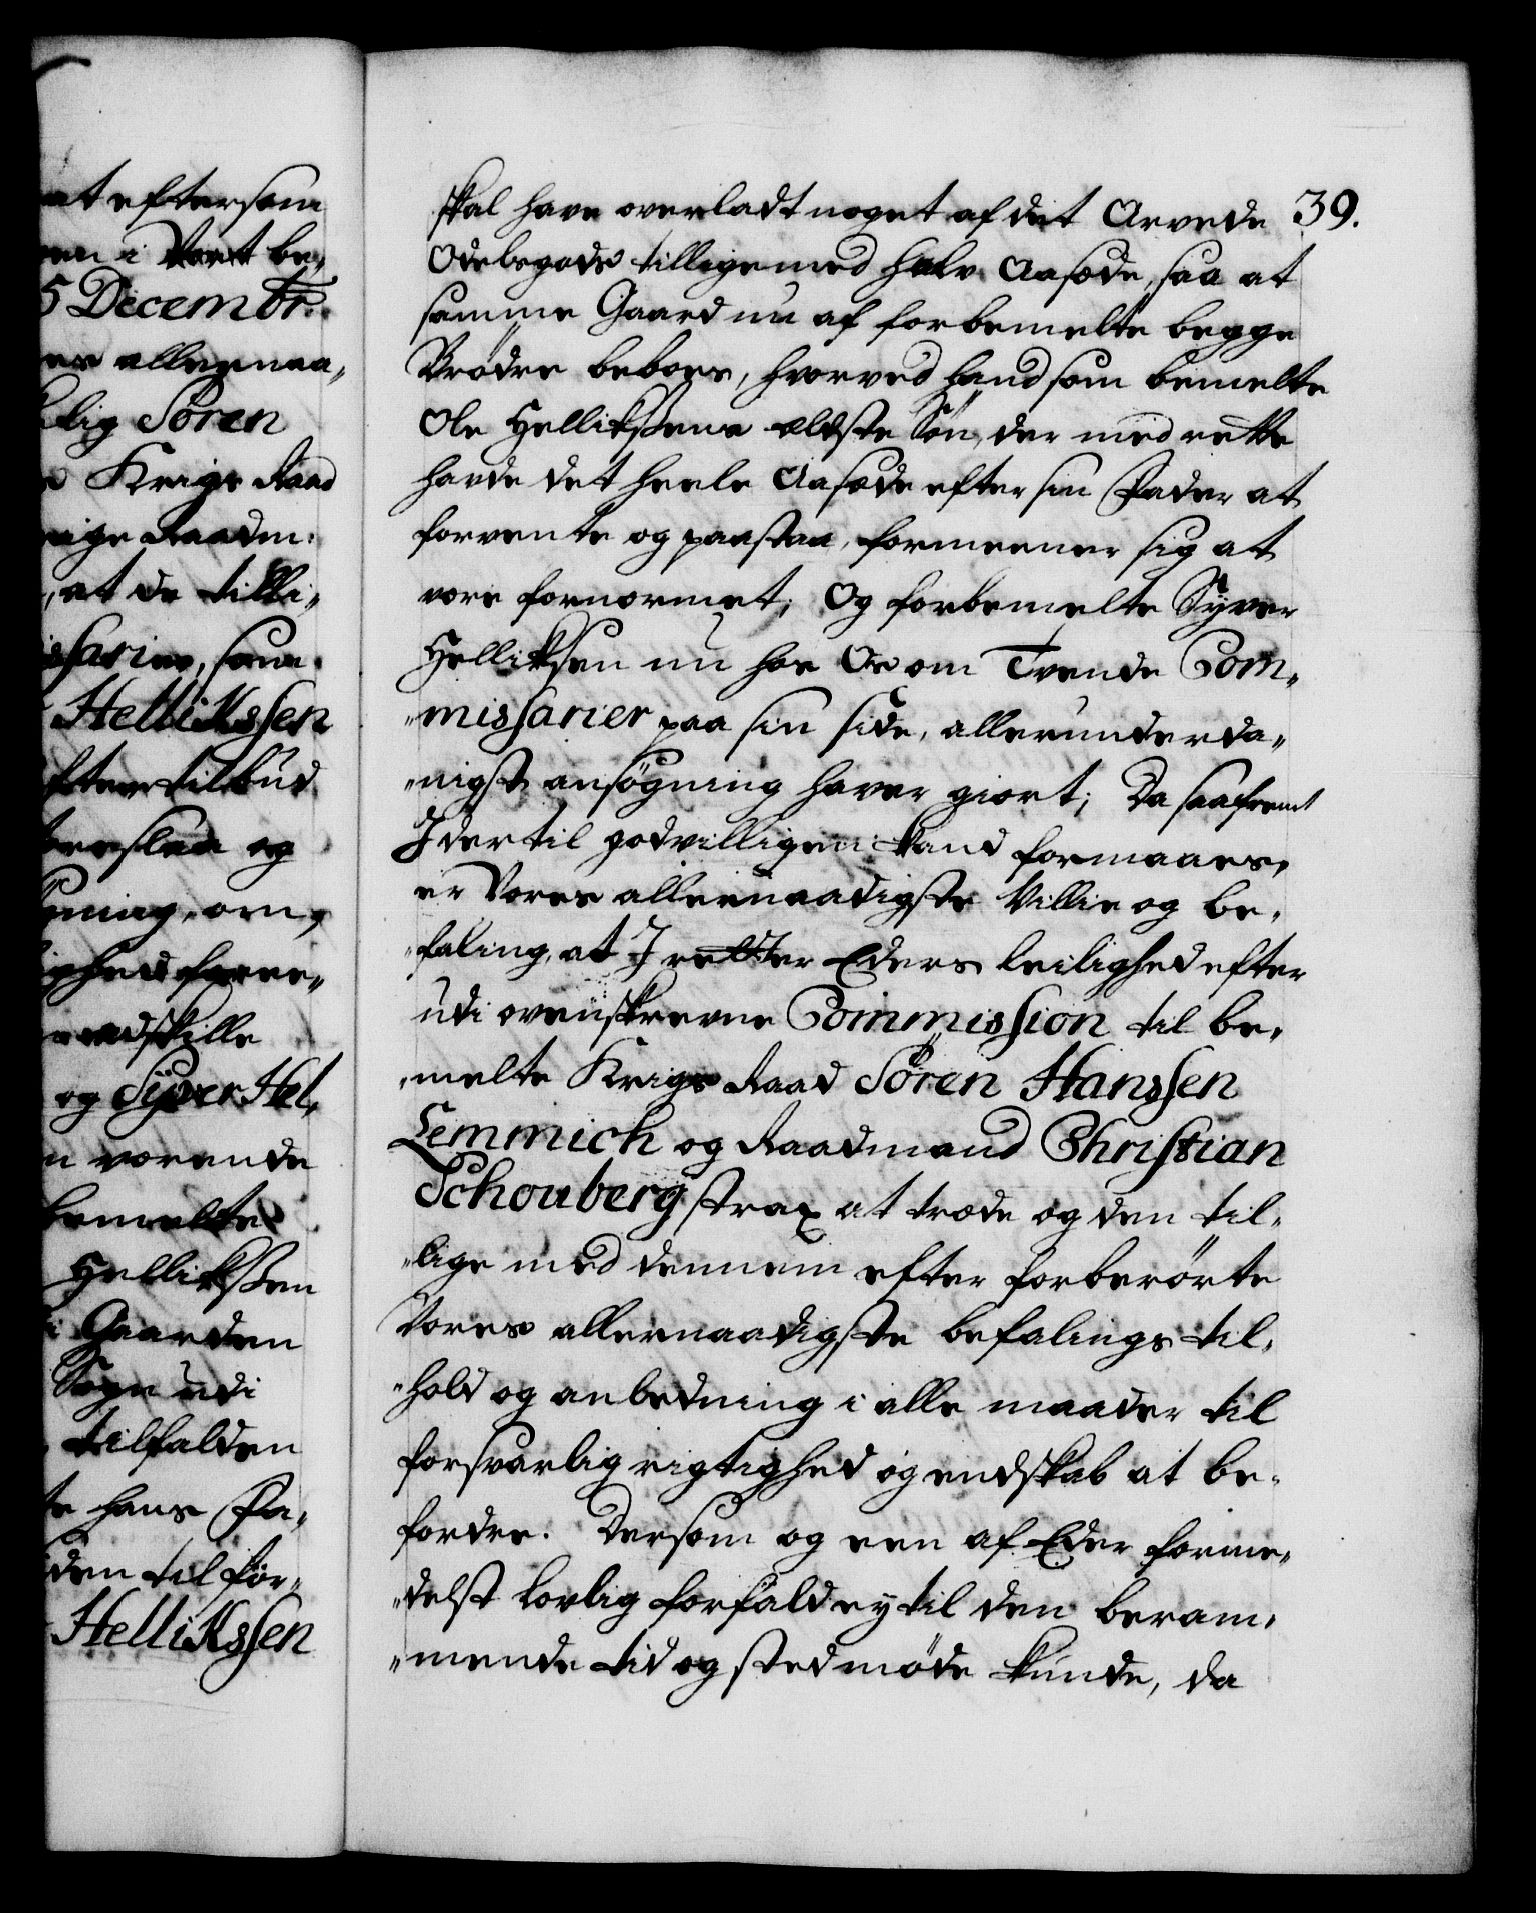 at eftersom
en i Vort be„
5 Decembr.
er allernaa„
lig Sören
Krigs Raad
rige Raadm:
, at de tilli„
issarier, som
Hellikssen
efter tilbud
foreslaa og
gning, om
ighed forre„
adskille
og Syver Hel„
n værende
bemelte
Hellikssen
i Gaarden
Sogn udi
tilfalden
te hans Fa„
den til for„
Hellikssen
39.
skal have overladt noget af det Arvede
Odelsgods tilligemed halv Aasæde, saa at
samme Gaard nu af forbemelte begge
Brødre beboes, hvorved hand som bemelte
Ole Hellikssens ældste Søn, der med rette
havde det heele Aasæde efter sin Fader at
forvente og paastaa, formeener sig at
være fornermet; Og forbemelte Syver
Helliksen nu hos Os om Tvende Com„
„missarier paa sin side, allerunderda„
„nigst ansøgning haver giort; Da saafremt
I dertil godvilligen kand formaaes,
er Vores allernaadigste Villie og be„
„faling, at I retter Eders leilighed efter
udi ovenskrevne Commission til be„
„melte Krigs Raad Sören Hanssen
Lemmich og Raadmand Christian
Schouberg strax at træde og den til„
„lige med dennem efter forberørte
Vores allernaadigste befalings til„
„hold og anledning i alle maader til
forsvarlig rigtighed og endskab at be„
fordre. Dersom og een af Eder forme„
„delst lovlig forfald ey til den beram„
„mende tid og sted møde kunde, da